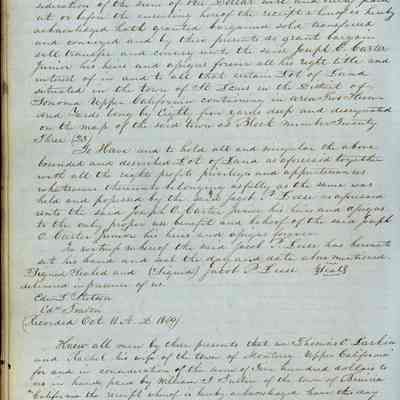 sideration of the sum of One Dollar well and truly paid
at or before the ensealing hereof the receipt whereof is hereby
acknowledged hath granted bargained sold transferred
and conveyed and by these presents do grant bargain
sell transfer and convey unto the said Joseph O. Carter
Junior his heirs and assigns forever all his right title and
interest of in and to all that certain Lot of Land
situated in the town of St Louis in the District of
Sonoma Upper California containing in area Two Hundred
yards long by Eighty five yards deep and designated
on the map of the said town as Block number Twenty
Three (23)
To Have and to hold all and singular the above
bounded and described Lot of Land as aforesaid together
with all the rights profits privileges and appurtenances
whatsoever thereunto belonging as fully as the same was
held and possessed by the said Jacob P. Leese as aforesaid
unto the said Joseph O. Carter Junior his heirs and assigns
to the only proper use benefit and behoof of the said Joseph
O. Carter Junior his heirs and assigns forever
In witness whereof the said Jacob P Leese has hereunto
set his hand and seal the day and date above mentioned
Signed Sealed and (Signed) Jacob P Leese (Seal)
delivered in presence of us
Recorded Oct 11 A. D. 1849
Know all men by these presents that we Thomas O. Larkin
and Rachel his wife of the town of Monterey Upper California
for and in consideration of the sum of Four hundred dollars to
us in hand paid by William of the town of Benicia
California the receipt whereof is hereby acknowledged have this day